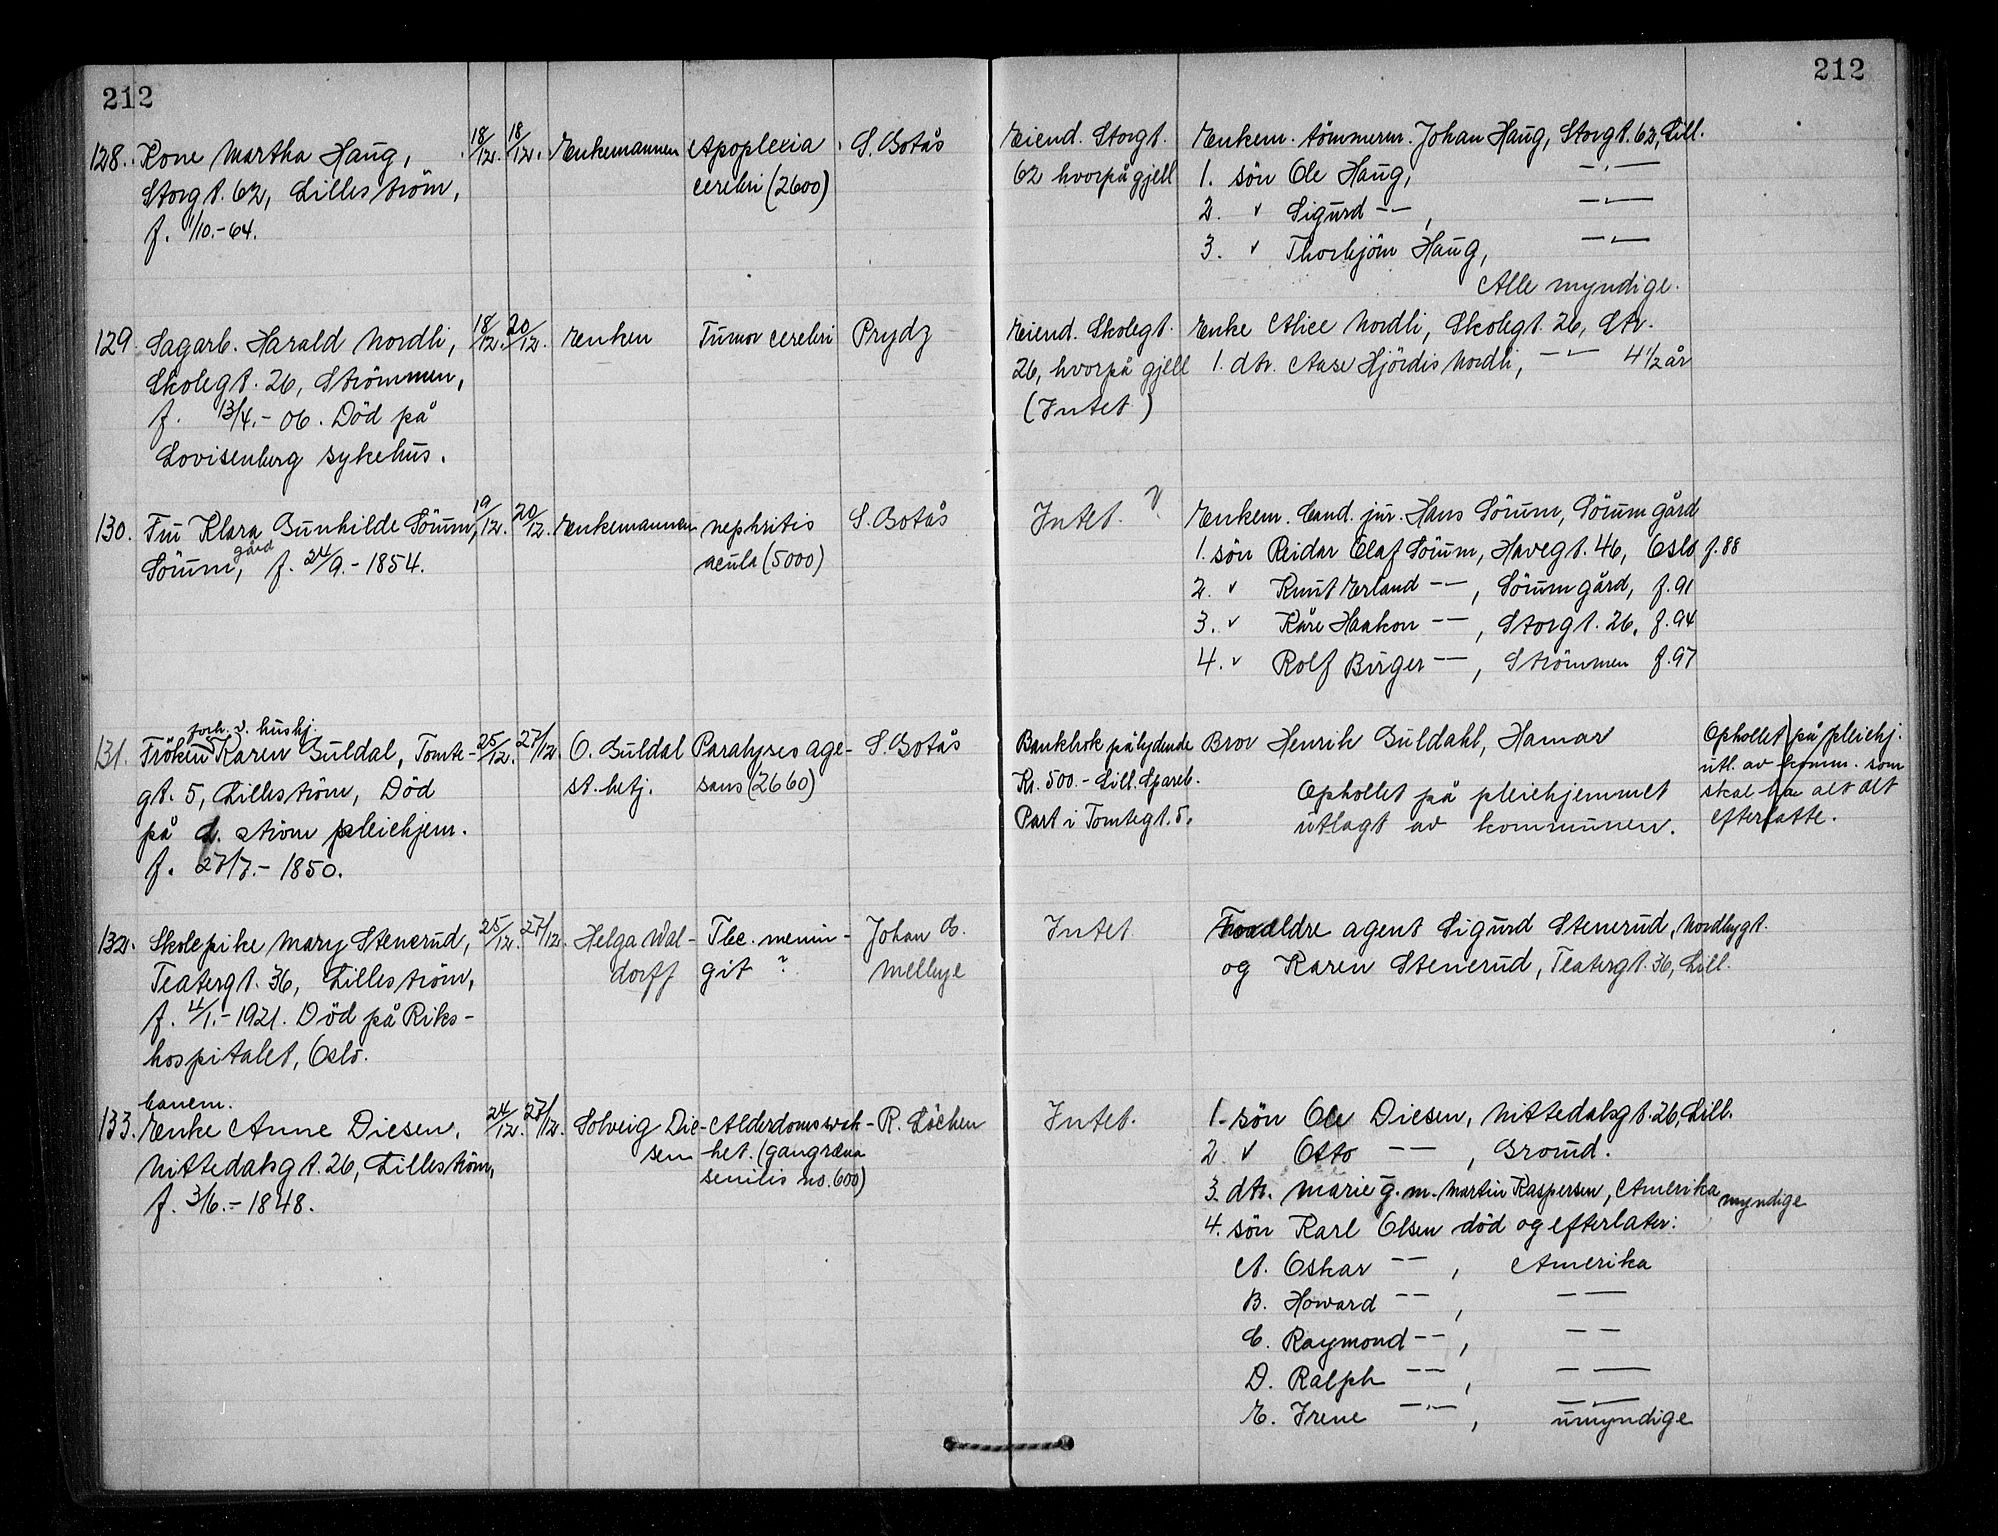 212
212
128. Kone Martha Haug, 18/12. 18/12. Enkemannen Apoplexia S. Botås Eiend. Storgt. Enkem. tömmerm. Johan Haug, Storgt. 62, Lill.
Storgt. 62, Lilleström, cerebri (2600) 62 hvorpå gjell 1. sön Ole Haug, — " —
f. 1/10.-64. 2. " Sigurd — — , — " —
3. " Thorbjörn Haug, — " —
Alle myndige.
129. Sagarb. Harald Nordli, 18/12. 20/12. Enken Tumor cerebri Prydz Eiend. Skolegt. Enke Alice Nordli, Skolegt. 26, Str.
Skolegt. 26, Strömmen, 26, hvorpå gjell 1. dtr. Aase Hjördis Nordli, — " — 4 1/2 år
f. 13/4.- 06. Död på (Intet)
Lovisenberg sykehus.
130. Fru Klara Gunhilde Sörum, 19/12. 20/12. Enkemannen Nephritis S. Botås Intet. Enkem. Cand. jur. Hans Sörum, Sörum gård
Sörum gård, f. 24/9.- 1854. acuta (5000) 1. sön Reidar Olaf Sörum, Havegt. 46, Oslo f. 88
2. " Knut Erland — — , Sörum gård, f. 91
3. " Kåre Haakon — — , Storgt. 26, f. 94
4. " Rolf Birger — — , Strömmen f. 97
forh. v. hushj.
131. Fröken Karen Guldal, Tomte- 25/12. 27/12. O. Guldal Paralyses age- S. Botås Bankbok pålydende Bror Henrik Guldahl, Hamar Ophollet på pleiehj.
gt. 5, Lilleström, Död st. betj. sans (2660) Kr. 500.- Lill. Spareb. Ophollet på pleiehjemmet utl. av komm. som
på L. ström pleiehjem. Part i Tomtegt. 5. utlagt av kommunen. skal ha alt det
f. 27/7.- 1850. efterlatte.
132. Skolepike Mary Stenerud, 25/12. 27/12. Helga Wal- Tbc. menin- Johan C. Intet Foreldre agent Sigurd Stenerud, Nordbygt.
Teatergt. 36, Lilleström, dorff git ? Melbye og Karen Stenerud, Teatergt. 36, Lill.
f. 4/1.- 1921. Död på Riks-
hospitalet, Oslo.
133. Enke Anne Diesen, 24/12. 27/12. Solveig Die- Alderdomssvak- R. Löchen Intet. 1. sön Ole Diesen, Nittedalsgt. 26, Lill.
Nittedalsgt. 26, Lilleström, sen het. (gangræna 2. " Otto — — , Grorud.
f. 3/6.- 1848. senilis no. 600) 3. dtr. Marie g. m. Martin Kaspersen, Amerika myndige
4. sön Karl Olsen död og efterlater:
A. Oskar — — , Amerika
B. Howard — — , — —
C. Raymond — — , — —
D. Ralph — — , — —
E. Irene — " — , — " —
umyndige